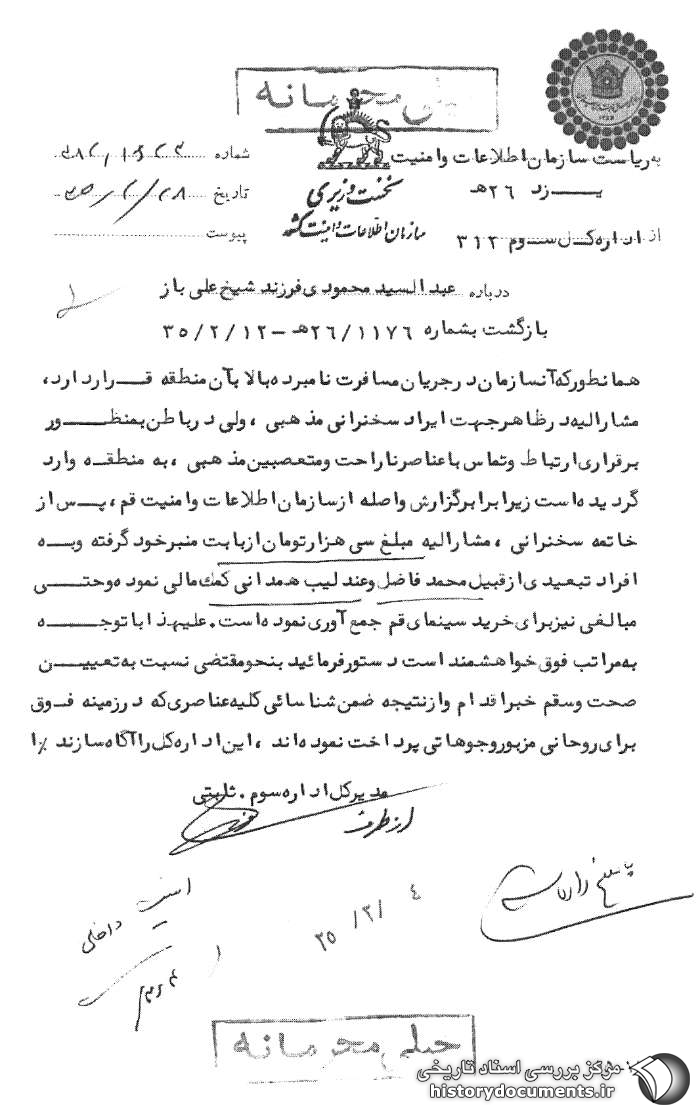 خیلی محرمانه
به ریاست سازمان اطلاعات و امنیت
یزد ۲۶ هـ
از اداره کل سوم ۳۱۲
نخست وزیری
سازمان اطلاعات و امنیت کشور
شماره
تاریخ
پیوست
درباره عبدالسید محمودی فرزند شیخ علی باز
بازگشت بشماره ۲۶/۱۱۷۶هـ - ۳۵/۲/۱۲
همانطور که آنسازمان در جریان مسافرت نامبرده بالا بآن منطقه قرار دارد،
مشارالیه در ظاهر جهت ایراد سخنرانی مذهبی ، ولی در باطن بمنظور
برقراری ارتباط و تماس با عناصر ناراحت و متعصبین مذهبی ، به منطقه وارد
گردیده است زیرا برابر گزارش واصله از سازمان اطلاعات و امنیت قم ، پس از
خاتمه سخنرانی ، مشارالیه مبلغ سی هزار تومان از بابت منبر خود گرفته و به
افراد تبعیدی از قبیل محمد فاضل و عندلیب همدانی کمک مالی نموده و حتی
مبالغی نیز برای خرید سینمای قم جمع آوری نموده است . علیهذا با توجه
به مراتب فوق خواهشمند است دستور فرمائید بنحو مقتضی نسبت به تعیین
صحت و سقم خبر اقدام و از نتیجه ضمن شناسائی کلیه عناصری که در زمینه فوق
برای روحانی مزبور وجوهاتی پرداخت نموده اند ، این اداره کل را آگاه سازند /ا
مدیر کل اداره سوم . ثابتی
از طرف
۳۵/۳/۴
داخلی
خیلی محرمانه
مرکز بررسی اسناد تاریخی
historydocuments.ir